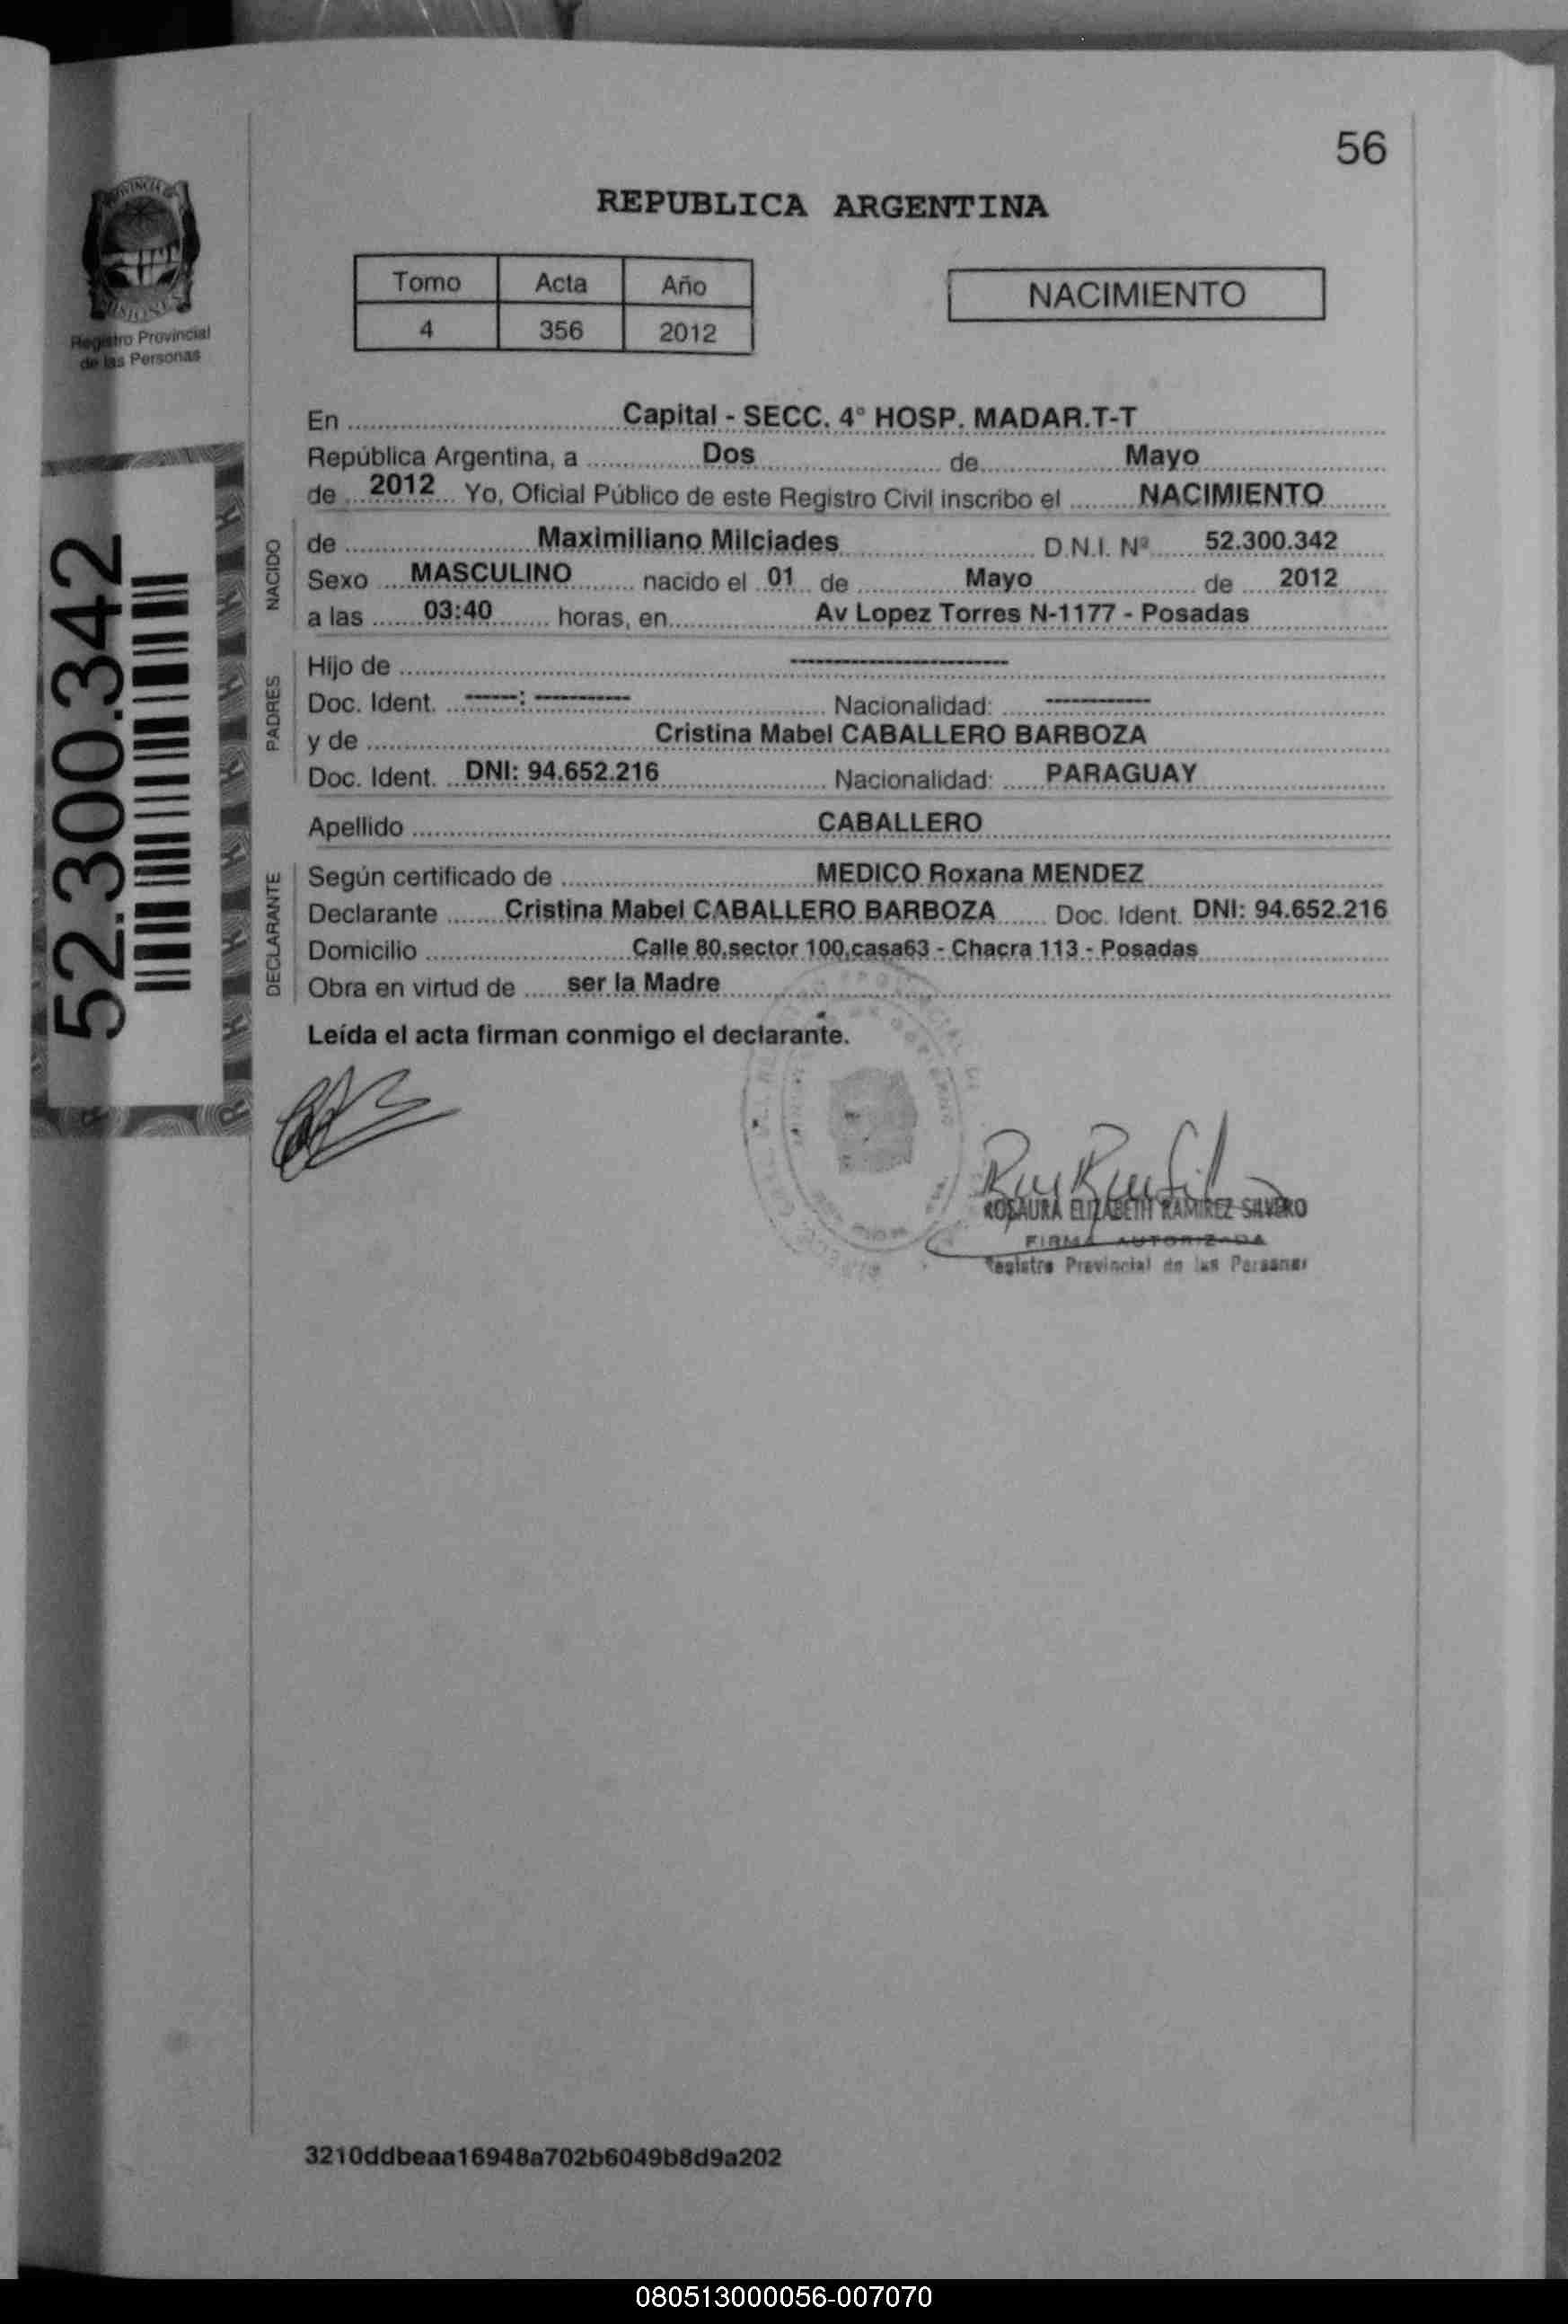 56
PROVINCIA DE
MISIONES
Registro Provincial
de las Personas
REPUBLICA ARGENTINA
Tomo Acta Año
4 356 2012
NACIMIENTO
52.300.342
En Capital - SECC. 4° HOSP. MADAR.T-T
República Argentina, a Dos de Mayo
de 2012 Yo, Oficial Público de este Registro Civil inscribo el NACIMIENTO
NACIDO
de Maximiliano Milciades D.N.I. Nº 52.300.342
Sexo MASCULINO nacido el 01 de Mayo de 2012
a las 03:40 horas, en Av Lopez Torres N-1177 - Posadas
PADRES
Hijo de --------------------
Doc. Ident. -----: --------- Nacionalidad: ----------
y de Cristina Mabel CABALLERO BARBOZA
Doc. Ident. DNI: 94.652.216 Nacionalidad: PARAGUAY
Apellido CABALLERO
DECLARANTE
Según certificado de MEDICO Roxana MENDEZ
Declarante Cristina Mabel CABALLERO BARBOZA Doc. Ident. DNI: 94.652.216
Domicilio Calle 80,sector 100,casa63 - Chacra 113 - Posadas
Obra en virtud de ser la Madre
Leída el acta firman conmigo el declarante.
ROSAURA ELIZABETH RAMIREZ SILVERO
FIRMA AUTORIZADA
Registro Provincial de las Personas
3210ddbeaa16948a702b6049b8d9a202
080513000056-007070